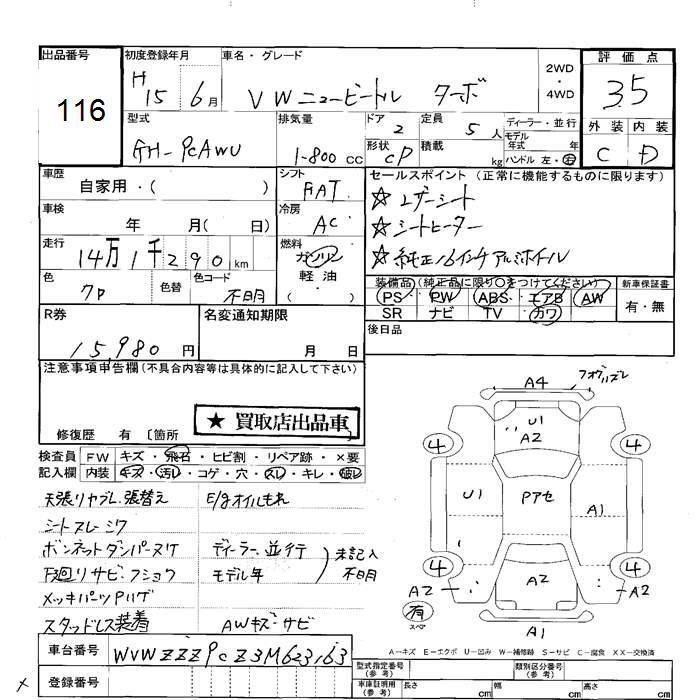 出品番号
116
初度登録年月
H 15 6月
車名・グレード
VWニュービートル ターボ
2WD
・
4WD
評価点
3.5
外装 内装
C D
型式
GH-9CAWU
排気量
1-800 cc
ドア 2
形状 CP
定員 5人
積載 kg
ディーラー・並行
モデル年式 年
ハンドル 左・右
車歴
自家用・( )
シフト
FAT
セールスポイント (正常に機能するものに限ります)
☆レザーシート
☆シートヒーター
☆純正16インチアルミホイル
車検
年 月( 日)
冷房
AC
走行
14万1千290km
燃料
ガソリン
軽油
( )
色
クロ
色替
色コード
不明
装備品 (純正品に限り○をつけてください)
PS PW ABS エアB AW
SR ナビ TV カワ
新車保証書
有・無
R券
15,980円
名変通知期限
月 日
後日品
注意事項申告欄(不具合内容等は具体的に記入して下さい)
★買取店出品車
修復歴 有 〔箇所
検査員 FW キズ・飛石・ヒビ割・リペア跡・×要
記入欄 内装 キズ・汚レ・コゲ・穴・スレ・キレ・破レ
天張リヤブレ.張替え
E/gオイルもれ
シートスレ・シワ
ボンネットダンパーヌケ
ディーラー、並行
モデル年
未記入
不明
下廻りサビ・フショク
メッキパーツPハゲ
スタッドレス装着
AWキズ・サビ
A4
フォグハズレ
U1
A2
4
4
U1
Pアセ
A1
4
4
A2
A2
A2
有
スペア
A1
A－キズ E－エクボ U－凹み W－補修跡 S－サビ C－腐食 XX－交換済
車台番号
WVWZZZ9CZ3M623163
登録番号
型式指定番号(参考)
類別区分番号(参考)
車庫証明用(参考)
長さ cm
幅 cm
高さ cm